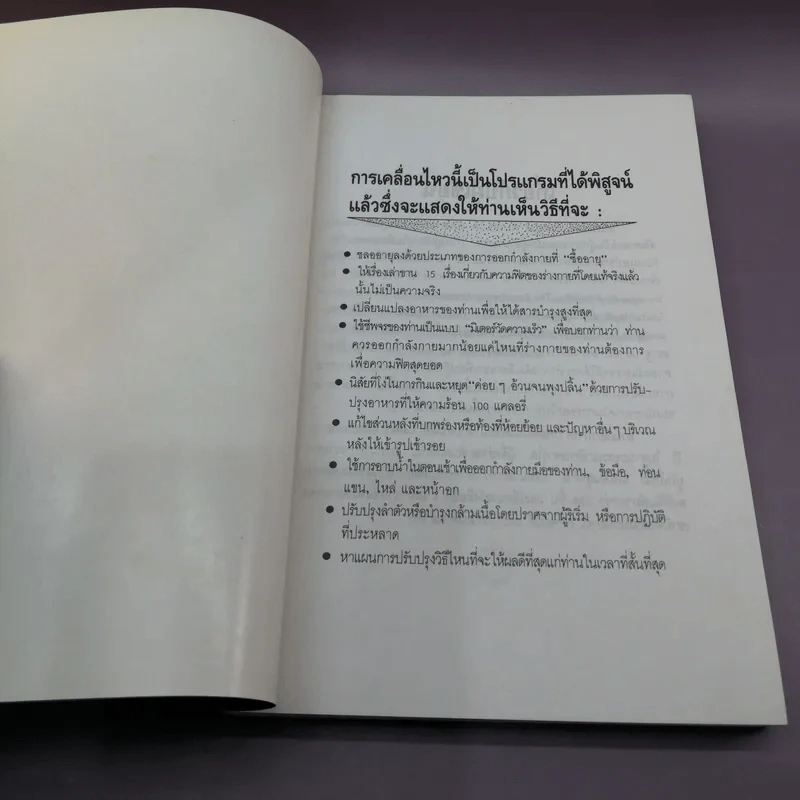 การเคลื่อนไหวนี้เป็นโปรแกรมที่ได้พิสูจน์
แล้วซึ่งจะแสดงให้ท่านเห็นวิธีที่จะ :
● ชลออายุลงด้วยประเภทของการออกกำลังกายที่ “ซื้ออายุ”
● ให้เรื่องเล่าขาน 15 เรื่องเกี่ยวกับความฟิตของร่างกายที่โดยแท้จริงแล้ว
นั้นไม่เป็นความจริง
● เปลี่ยนแปลงอาหารของท่านเพื่อให้ได้สารบำรุงสูงที่สุด
● ใช้ชีพจรของท่านเป็นแบบ “มิเตอร์วัดความเร็ว” เพื่อบอกท่านว่า ท่าน
ควรออกกำลังกายมากน้อยแค่ไหนที่ร่างกายของท่านต้องการ
เพื่อความฟิตสุดยอด
● นิสัยที่โง่ในการกินและหยุด“ค่อย ๆ อ้วนจนพุงปลิ้น”ด้วยการปรับ-
ปรุงอาหารที่ให้ความร้อน 100 แคลอรี่
● แก้ไขส่วนหลังที่บกพร่องหรือท้องที่ห้อยย้อย และปัญหาอื่น ๆ บริเวณ
หลังให้เข้ารูปเข้ารอย
● ใช้การอาบน้ำในตอนเช้าเพื่อออกกำลังกายมือของท่าน, ข้อมือ, ท่อน
แขน, ไหล่ และหน้าอก
● ปรับปรุงลำตัวหรือบำรุงกล้ามเนื้อโดยปราศจากผู้ริเริ่ม หรือการปฏิบัติ
ที่ประหลาด
● หาแผนการปรับปรุงวิธีไหนที่จะให้ผลดีที่สุดแก่ท่านในเวลาที่สั้นที่สุด